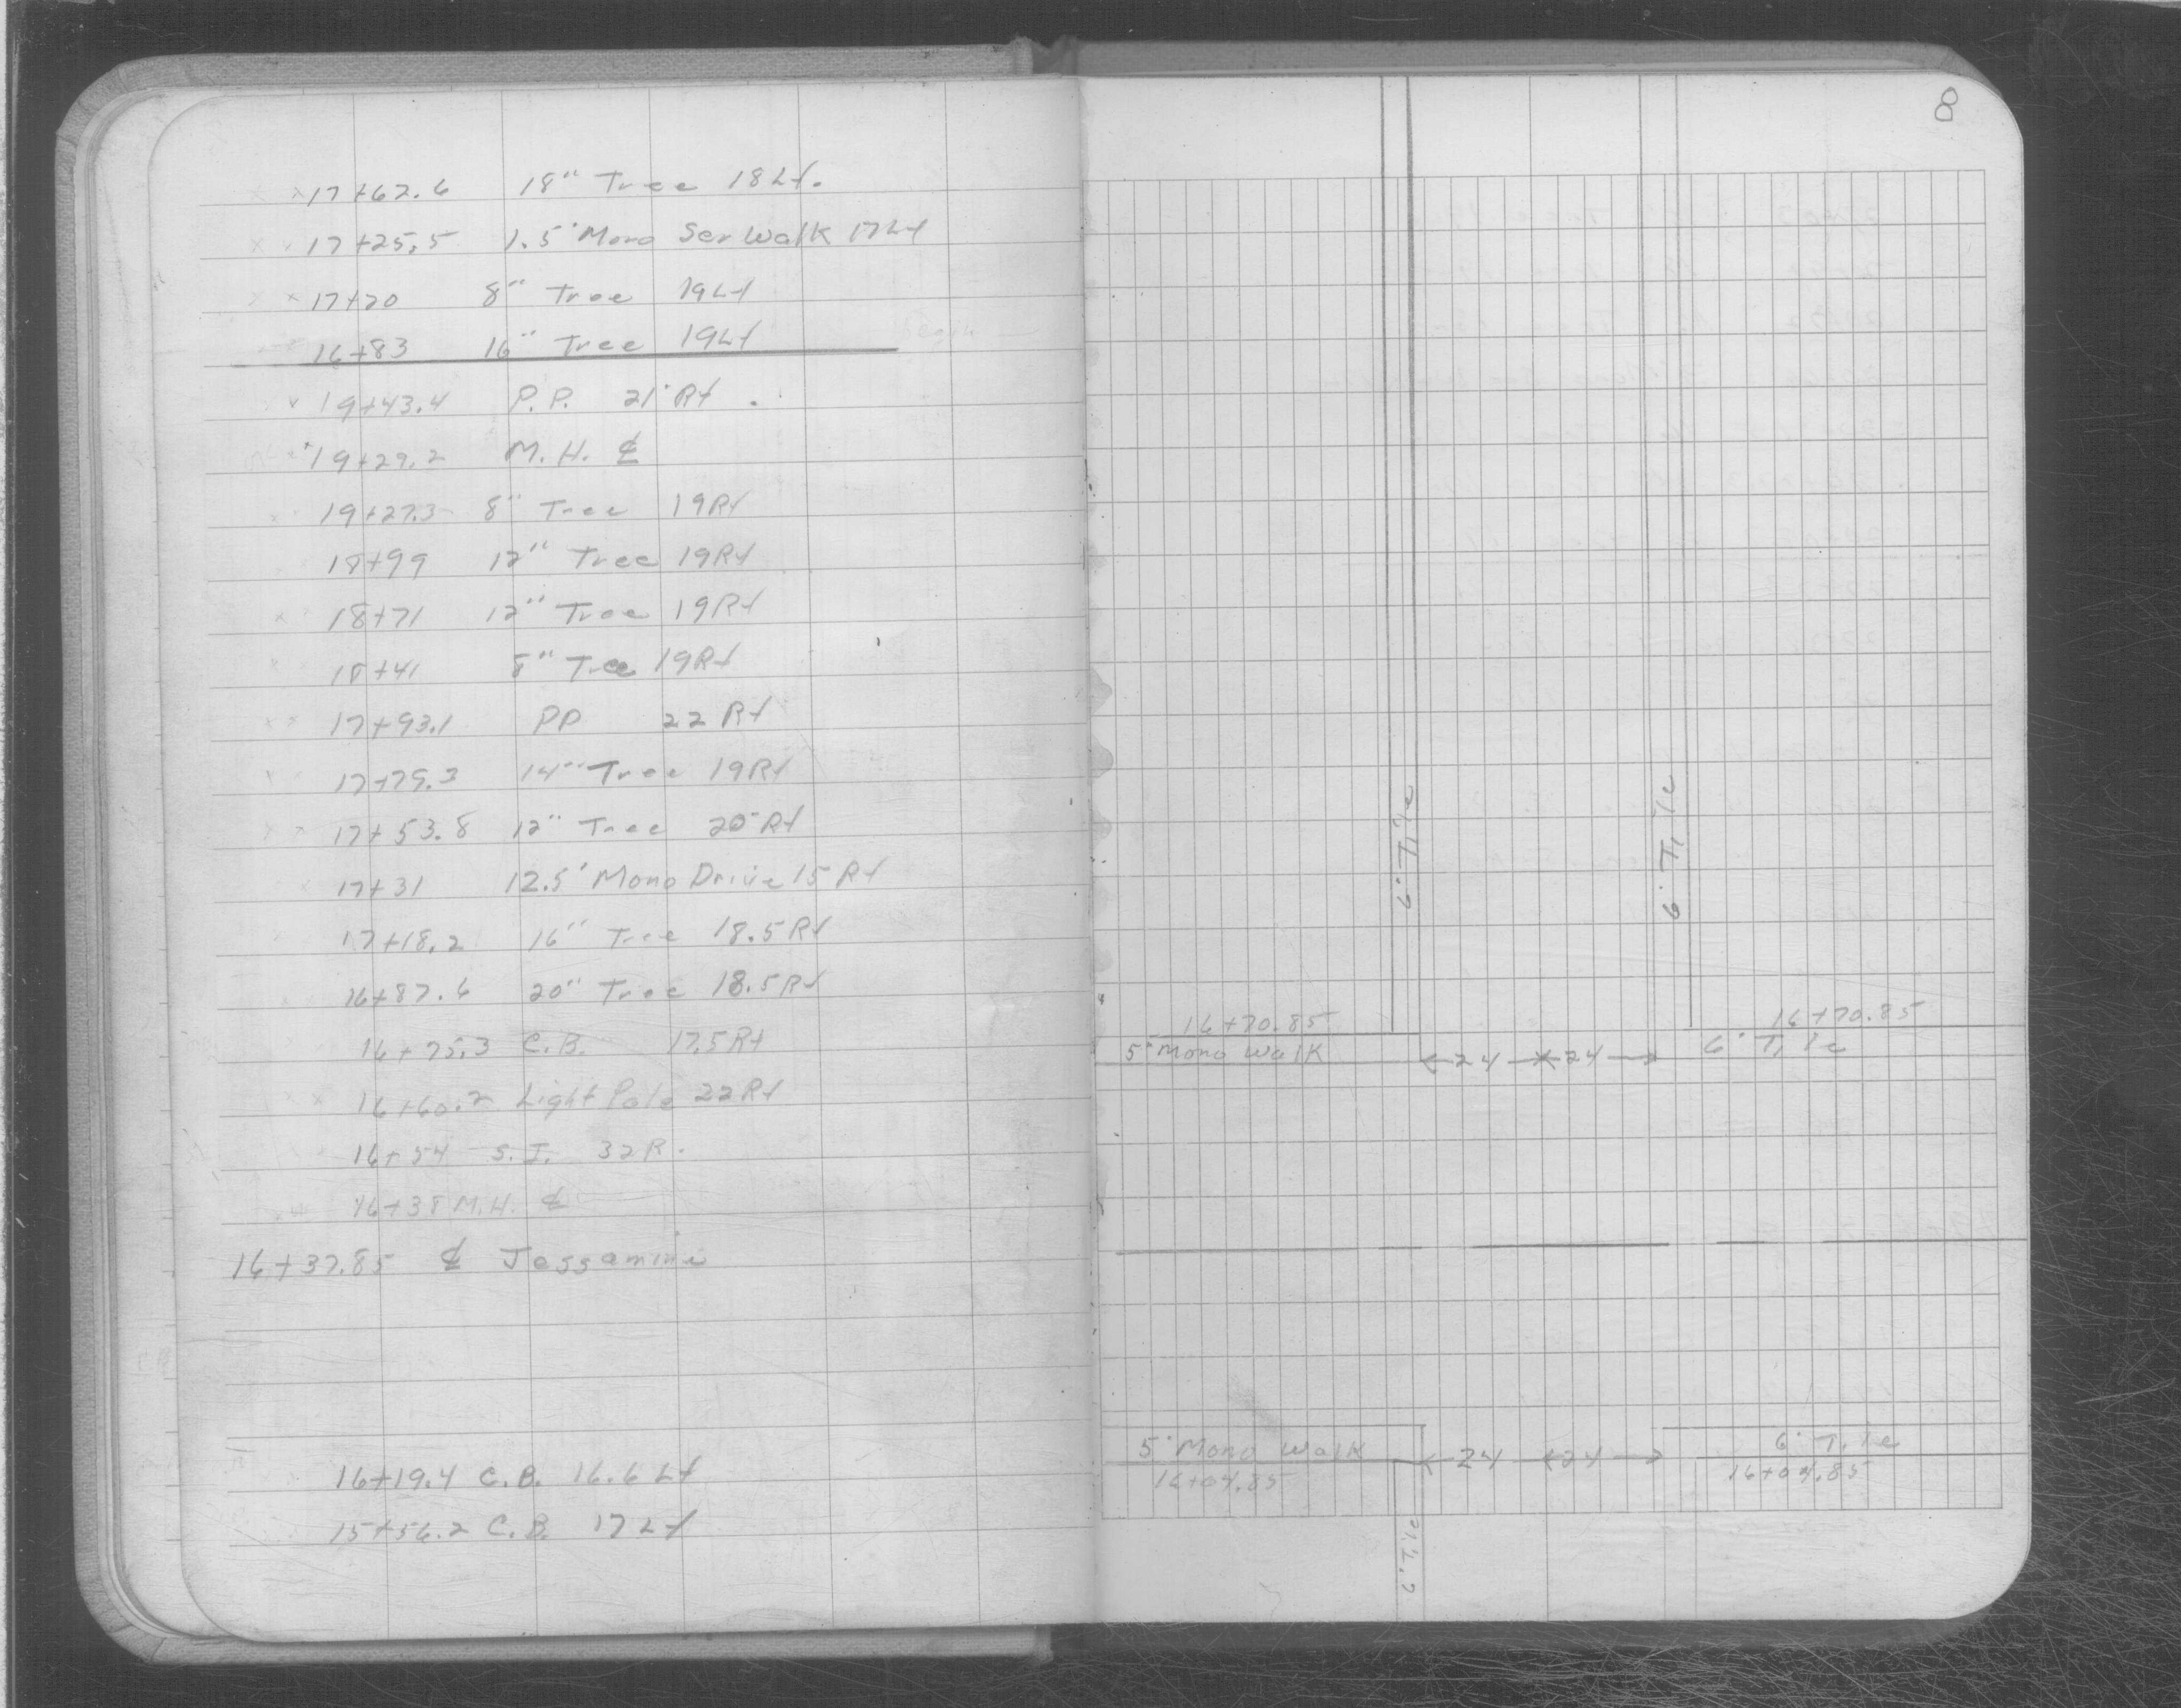 17+62.6 18" Tree 18Lt.
17+25.5 1.5' Mono Ser Walk 17Lt
17+20 8" Tree 19Lt
16+83 16" Tree 19Lt
Begin
19+43.4 P.P. 21' Rt.
19+29.2 M.H. ℄
19+27.3 8" Tree 19Rt
18+99 12" Tree 19Rt
18+71 12" Tree 19Rt
18+41 8" Tree 19Rt
17+93.1 PP 22 Rt
17+79.3 14" Tree 19Rt
17+53.8 12" Tree 20 Rt
17+31 12.5' Mono Drive 15 Rt
17+18.2 16" Tree 18.5Rt
16+87.6 20" Tree 18.5Rt
16+75.3 C.B. 17.5Rt
16+60.2 Light Pole 22Rt
16+54 S.I. 32R.
16+38 M.H. ℄
16+37.85 ℄ Jessamine
16+19.4 C.B. 16.6 Lt
15+56.2 C.B. 17 Lt
8
6' Tile
6' Tile
16+70.85
5' Mono Walk
24 24
16+70.85
6' Tile
5' Mono Walk
16+04.85
24 24
6' Tile
16+04.85
6' Tile